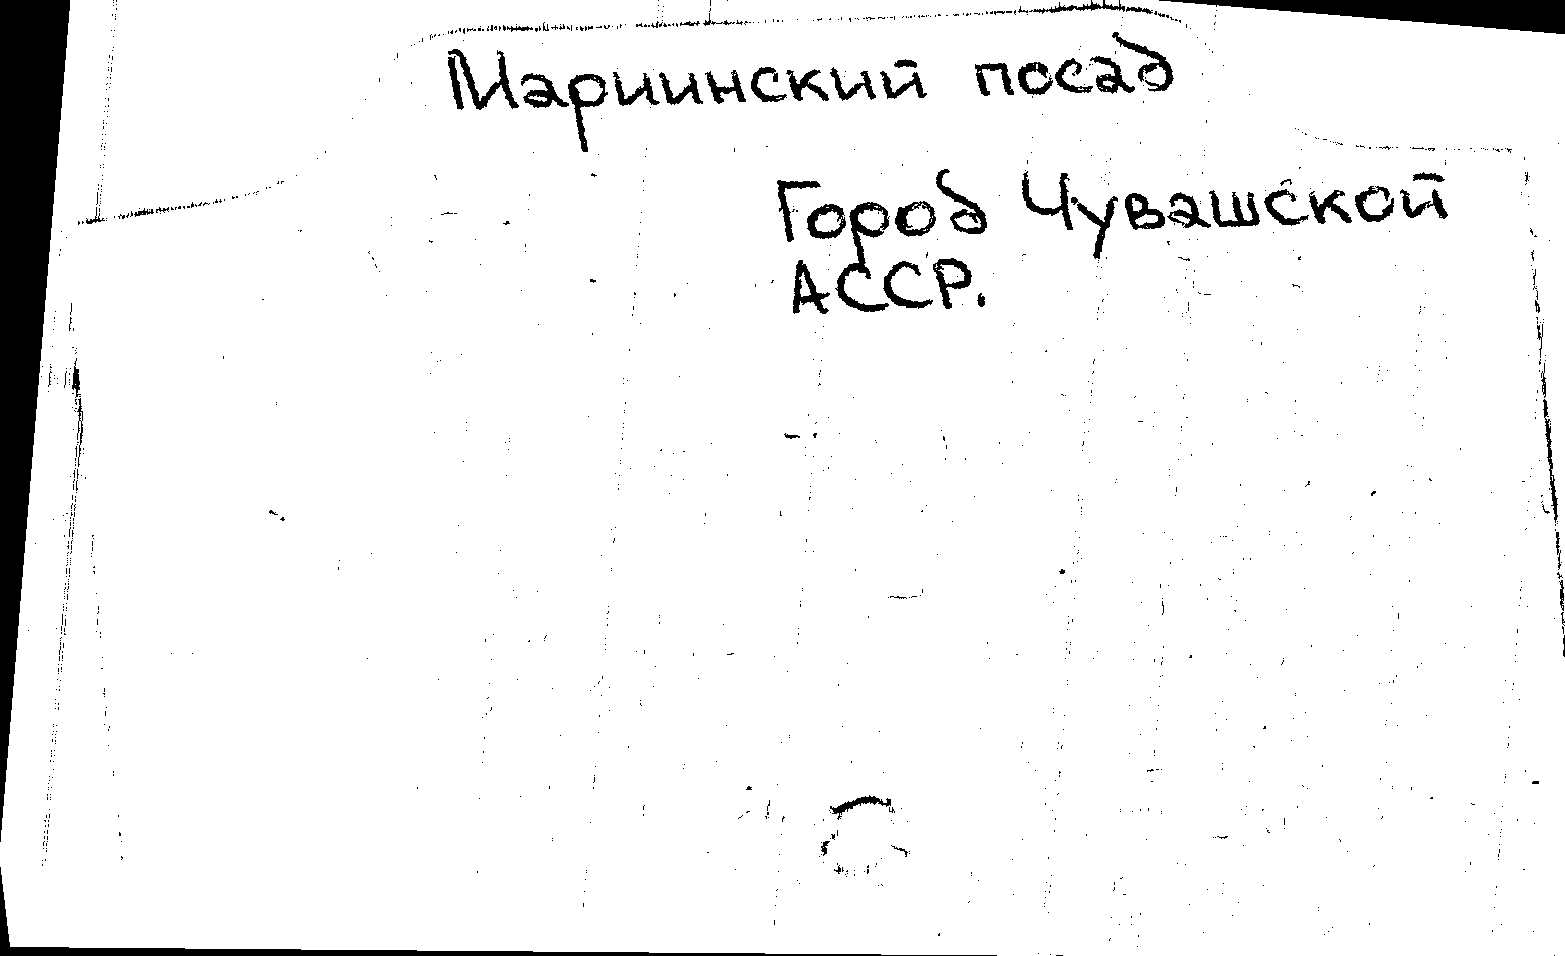 Мариинский посад
Город Чувашской
АССР.